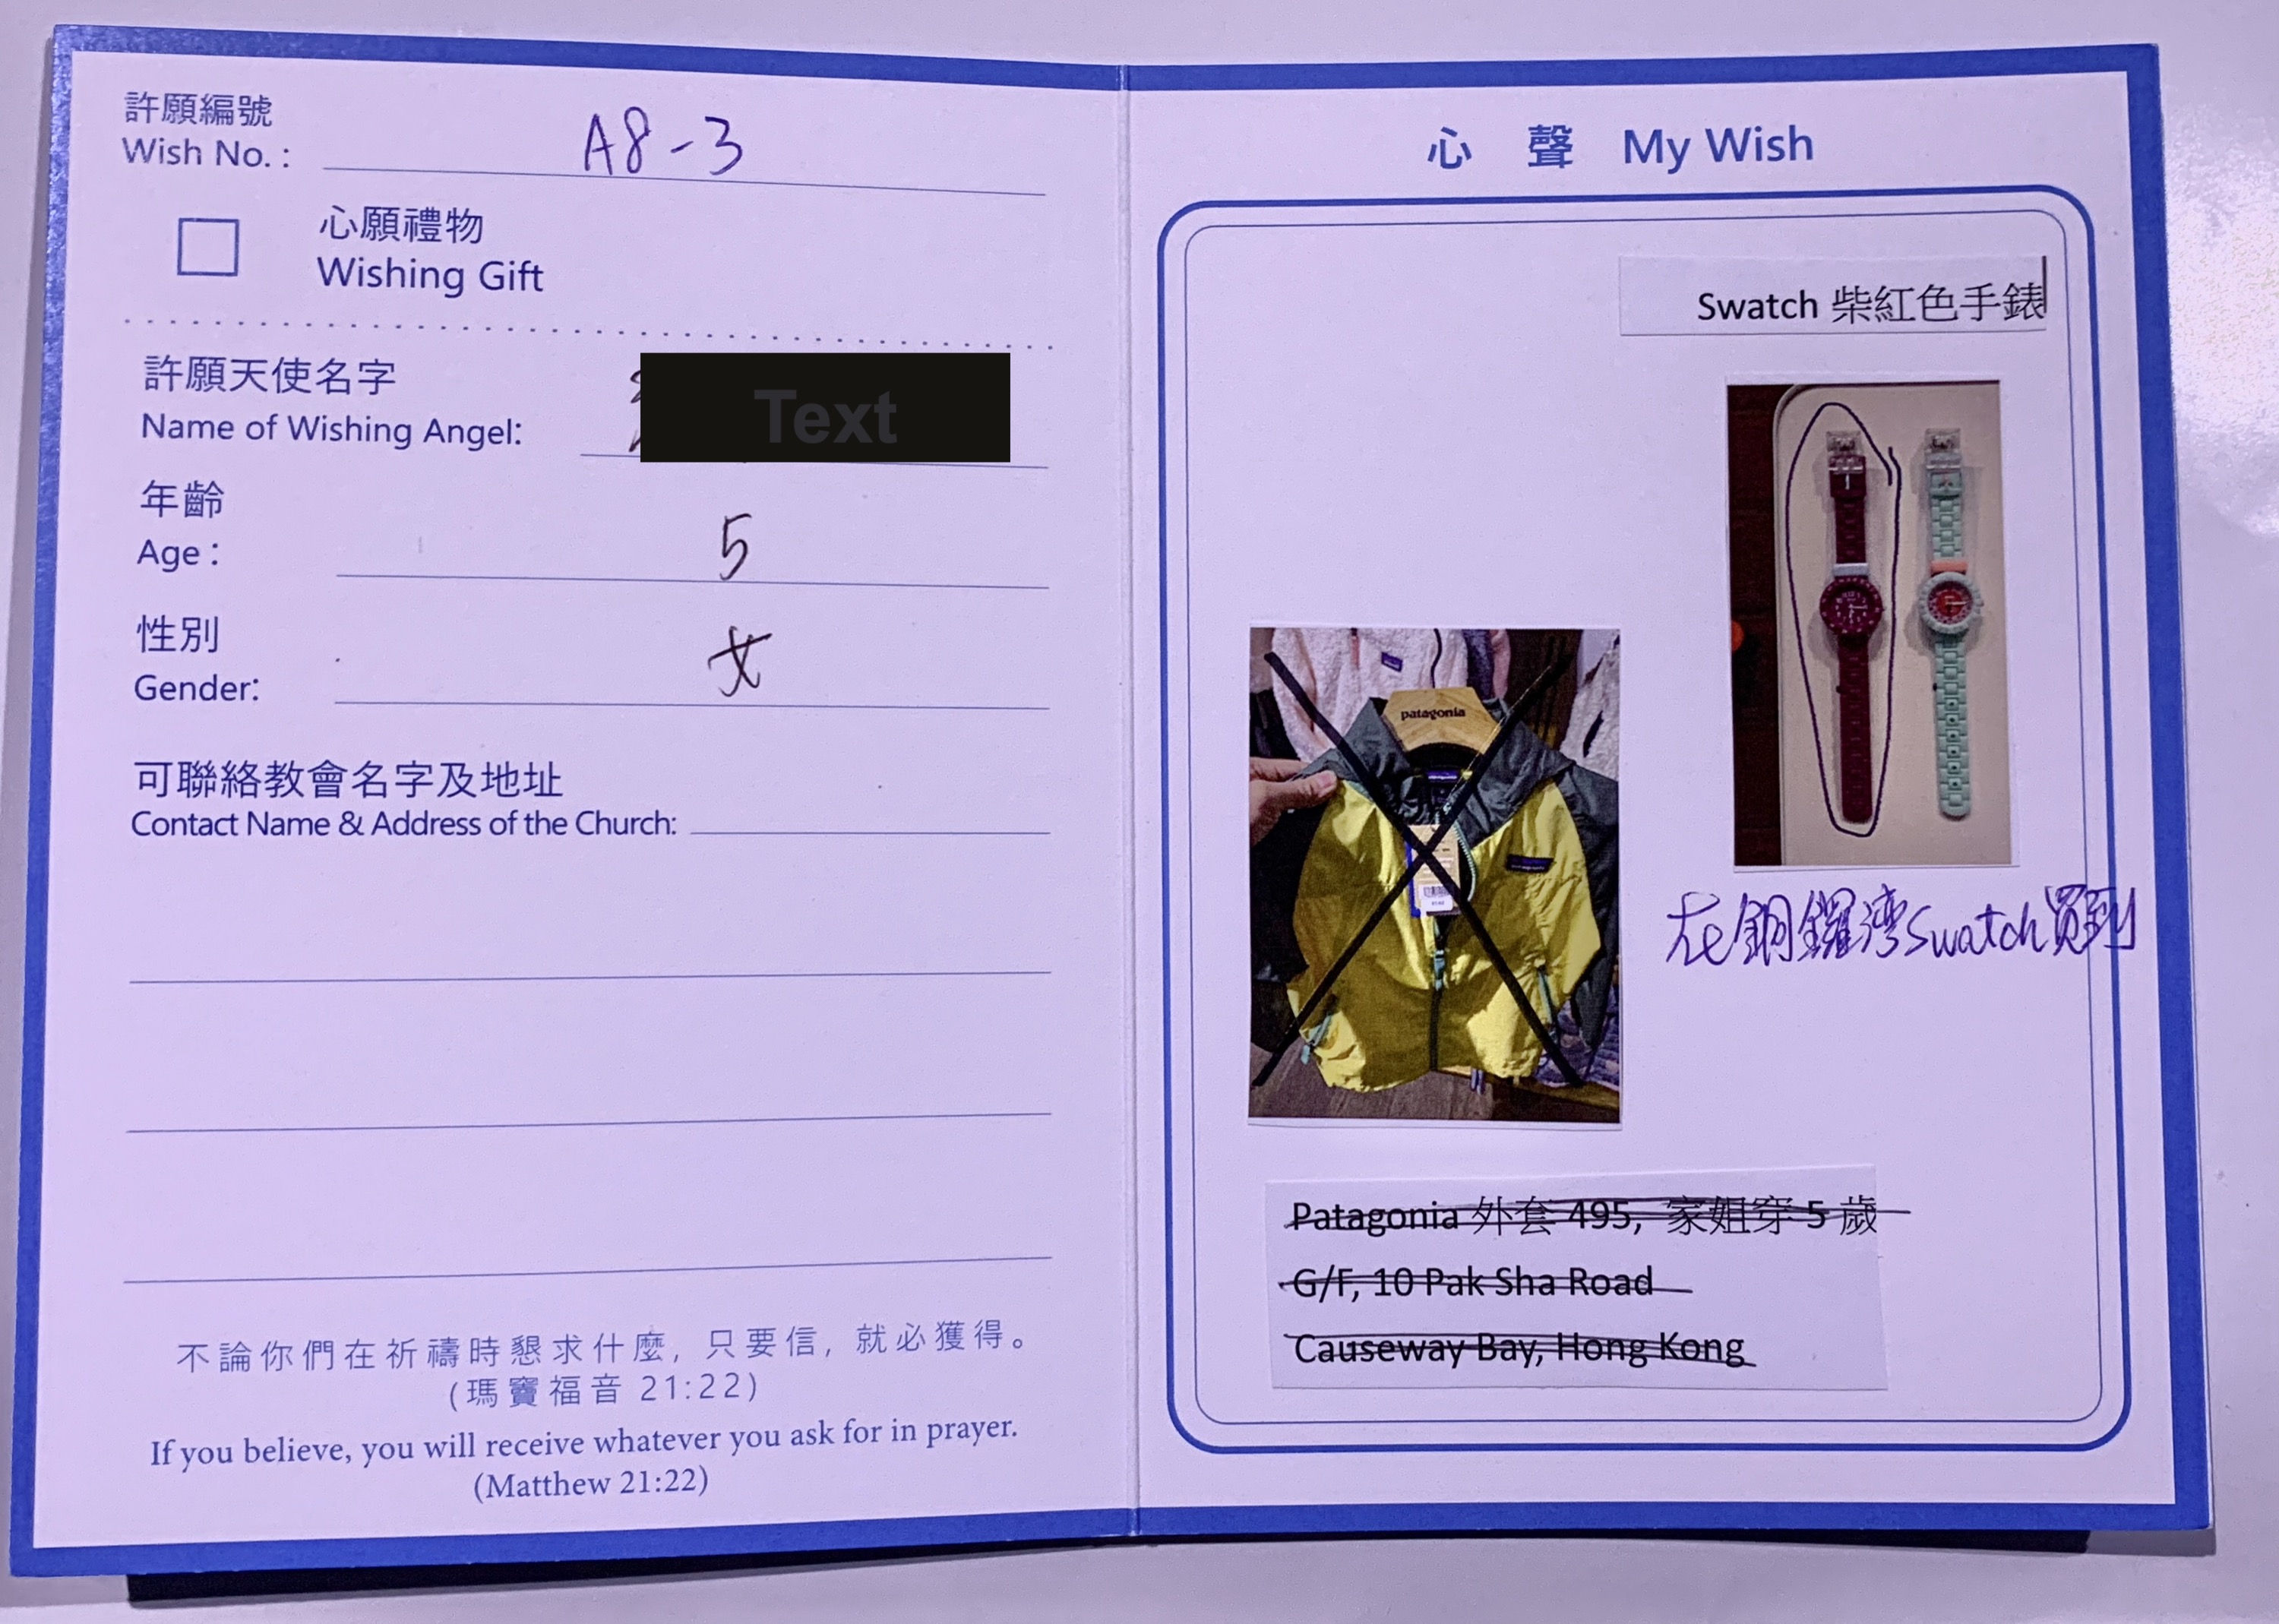 許願編號
Wish No. : A8-3
心願禮物
Wishing Gift
許願天使名字
Name of Wishing Angel:
Text
年齡
Age : 5
性別
Gender: 女
可聯絡教會名字及地址
Contact Name & Address of the Church:
不論你們在祈禱時懇求什麼，只要信，就必獲得。
(瑪竇福音 21:22)
If you believe, you will receive whatever you ask for in prayer.
(Matthew 21:22)
心聲 My Wish
Swatch 柴紅色手錶
patagonia
在銅鑼灣Swatch買到
Patagonia 外套 495, 家姐穿 5 歲
G/F, 10 Pak Sha Road
Causeway Bay, Hong Kong